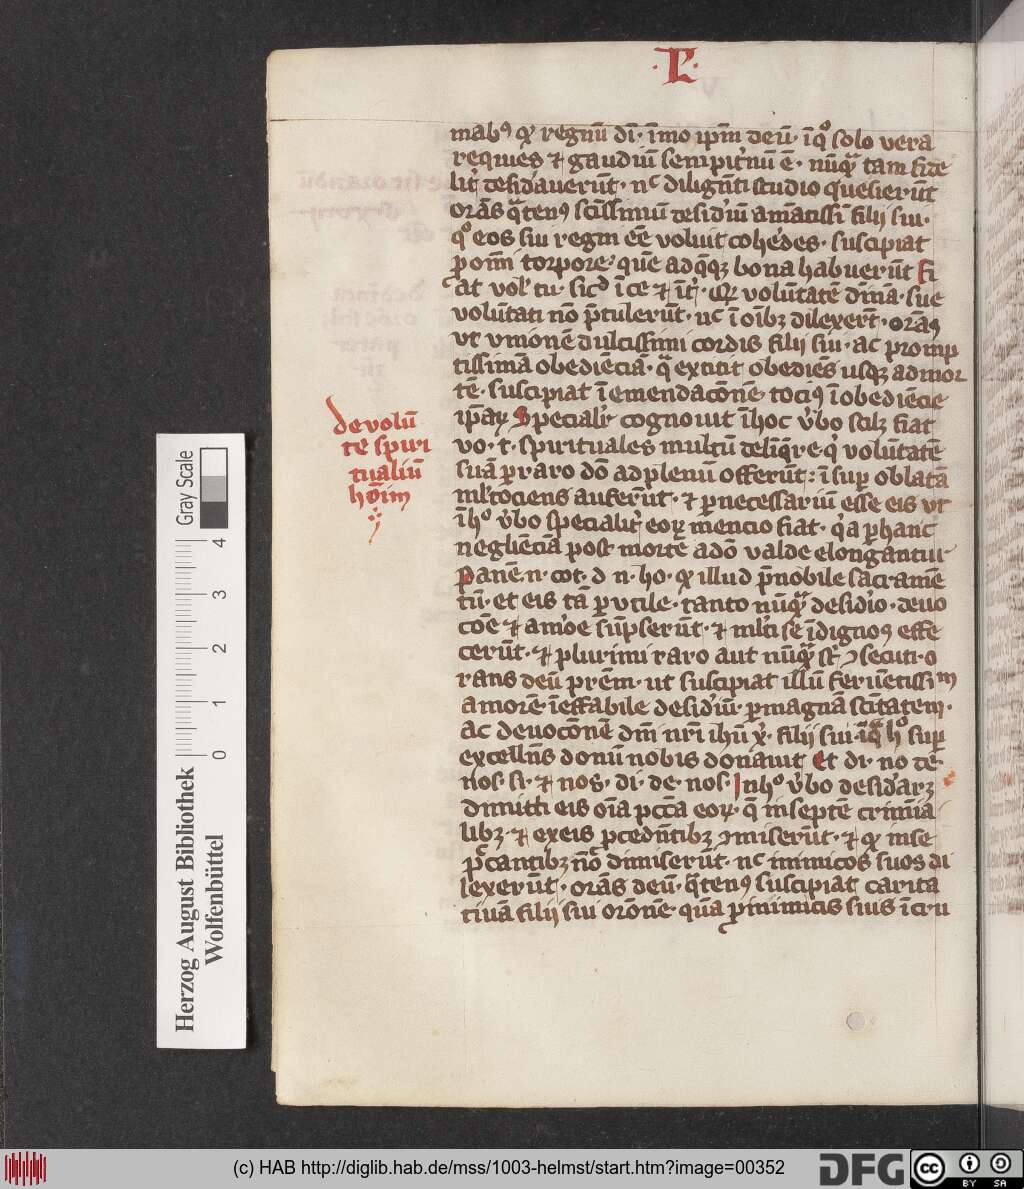 ·L·
mabꝰ qꝛ regnū dī· īmo ipm̄ deū· ī qͦ solo vera
requies ⁊ gaudiū sempit͛nū ē· nūqᷓ tam fide
lit͛ desid͛auerūt· nͨ diligēti studio quesierūt
orās qᷓtenꝰ sc̄issimū desid͛iū amātissī filij sui·
qͦ eos sui regni eē voluit coh͛edes· suscipiat
ꝓ om̄i torpore· quē ad q̄qꝫ bona habuerūt Fi
at vol͛ tu· sicͩ ī ce ⁊ ī t͛· Qꝛ volūtatē dīnā· sue
volūtati nō p̄tulerūt· nͨ ī oībꝫ dilexer̄t· orāꝰ
vt vnionē dulcissimi cordis filij sui· ac promp
tissimā obediēciā· qᷓ extitit obediēs usqꝫ ad mor
tē· suscipiat ī emendacōnē tociꝰ īobediēcie
ip̄aꝝ Specialit͛ cognouit ī hoc v͛bo scilꝫ fiat
vo· t· spirituales multū delīq̄re· qͥ volūtatē
suā ꝑraro dō ad plenū offerūt: īsuꝑ oblatā
ml̄tociens auferūt· ⁊ ꝑnecessariū esse eis vt
ī hͦ v͛bo specialit͛ eoꝝ mencio fiat· qͥa ꝑ hanc
negliēciā post mortē a dō valde elongantur·
Panē· n· cot· d n· ho· qꝛ illud p̄nobile sacramē
tū· et eis tā ꝑvtile· tanto nūqᷓ desid͛io· deuo
cōe ⁊ amōe sūpserūt· ⁊ ml̄ti se īdignoꝰ effe
cerūt· ⁊ plurimi raro aut nūqᷓ st̄ ꝯsecuti· o
rans deū prēm· ut suscipiat illū feruētissim̄
amorē· īeffabile desid͛iū· ꝑmagnā scītatem·
ac deuocōnē dm̄ nr̄i ihū xͥ· filij sui· ī qᷓ hͦ suꝑ
excellēs donū nobis donauit Et di· no de·
nos· si· ⁊ nos· di· de· nos· In hͦ v͛bo desid͛arꝫ
dimitti eis oīa pccā eoꝝ· q̄ in septē crīmīa
libꝫ· ⁊ ex eis p͛cedētibꝫ ꝯmiserūt· ⁊ qꝛ in se
pͨcantibꝫ nō dimiserūt· nͨ inimicos suos di
lexerūt· orās deū· qᷓtenꝰ suscipiat carita
tiuā filij sui orōnē· quā ꝓ inimicis suis ī cru
de volū
tē spiri
tualiū
hōim
Gray Scale
0 1 2 3 4
Herzog August Bibliothek
Wolfenbüttel
(c) HAB http://diglib.hab.de/mss/1003-helmst/start.htm?image=00352
DFG
cc BY SA